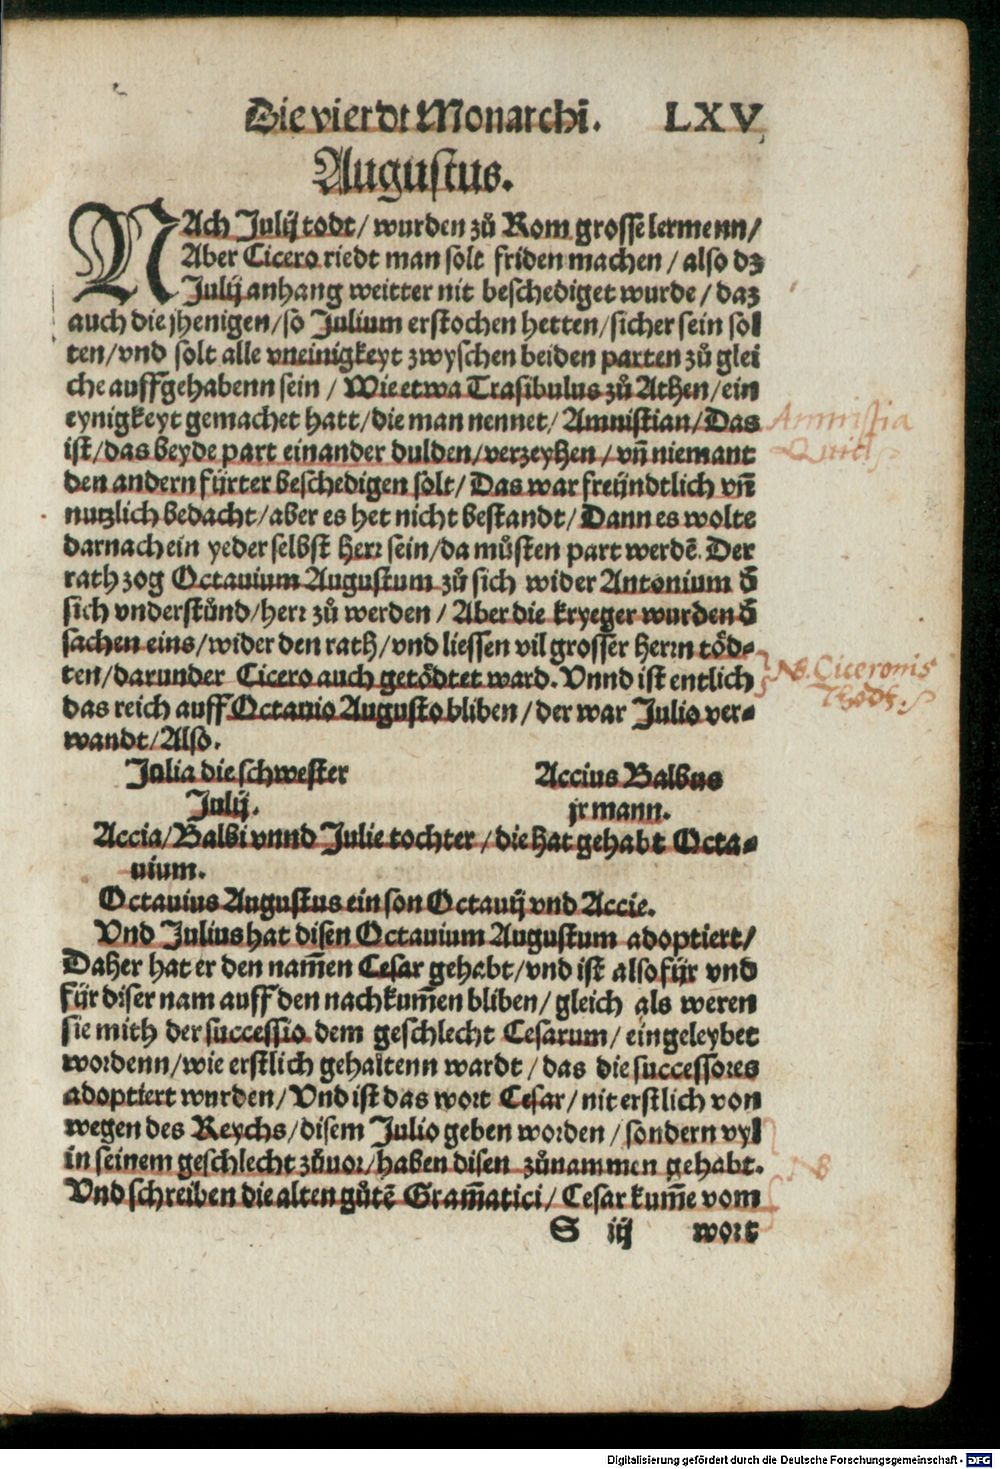 Die vierdt Monarchi. LXV
Augustus.
NAch Julij todt/ wurden zů Rom grosse lermenn/
Aber Cicero riedt man solt friden machen/ also dz
Julij anhang weitter nit beschediget wurde/ daz
auch die jhenigen/so Julium erstochen hetten/sicher sein sol
ten/vnd solt alle vneinigkeyt zwyschen beiden parten zů glei
che auffgehabenn sein/ Wie etwa Trasibulus zů Athen/ein
eynigkeyt gemachet hatt/die man nennet/ Amnistian/Das
ist/das beyde part einander dulden/verzeyhen/vñ niemant
den andern fürter beschedigen solt/ Das war freündtlich vñ
nutzlich bedacht/aber es het nicht bestandt/Dann es wolte
darnach ein yeder selbst herr sein/da můsten part werdẽ. Der
rath zog Octauium Augustum zů sich wider Antonium đ
sich vnderstůnd/herr zů werden/ Aber die kryeger wurden đ
sachen eins/wider den rath/vnd liessen vil grosser herrn töd⸗
ten/darunder Cicero auch getödtet ward. Vnnd ist entlich
das reich auff Octauio Augusto bliben/der war Julio ver⸗
wandt/Also.
Julia die schwester Accius Balbus
Julij. jr mann.
Accia/Balbi vnnd Julie tochter/die hat gehabt Octa⸗
uium.
Octauius Augustus ein son Octauij vnd Accie.
Vnd Julius hat disen Octauium Augustum adoptiert/
Daher hat er den nam̃en Cesar gehabt/vnd ist also für vnd
für diser nam auff den nachkum̃en bliben/ gleich als weren
sie mith der successio dem geschlecht Cesarum/ eingeleybet
wordenn/wie erstlich gehaltenn wardt/ das die successores
adoptiert wurden/Vnd ist das wort Cesar/nit erstlich von
wegen des Reychs/disem Julio geben worden/sondern vyl
in seinem geschlecht zůuor/haben disen zůnammen gehabt.
Vnd schreiben die alten gůtẽ Gram̃atici/ Cesar kum̃e vom
S iij wort
Amnistia
Quid
NB. Ciceronis
Thodt.
NB
Digitalisierung gefördert durch die Deutsche Forschungsgemeinschaft - DFG